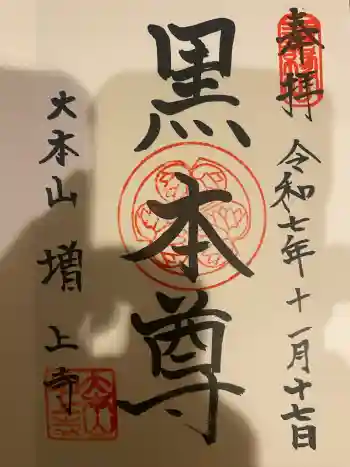 奉拝
令和七年十一月十七日
黒本尊
大本山
増上寺